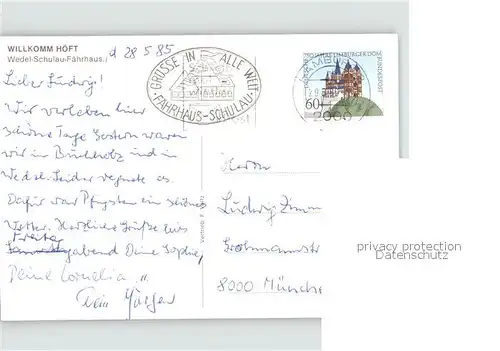 WILLKOMM HÖFT
Wedel-Schulau-Fährhaus.
d 28.5.85
Lieber Ludwig!
Wir verleben hier
schöne Tage. Gestern waren
wir in Buchholz und in
Wedel. Leider regnete es.
Dafür war Pfingsten ein schönes
Wetter. Herzliche Grüße bis
Freitagabend Deine Sophie,
Deine Cornelia "
Dein Jürgen
Vertrieb:
GRÜSSE IN ALLE WELT
FÄHRHAUS-SCHULAU
HAMBURG
LIMBURGER DOM
BUNDESPOST
60
2000
Herrn
Ludwig Zimm
8000 Münche
privacy protection
Datenschutz